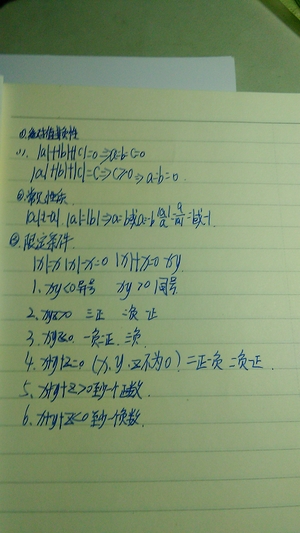 ①绝对值非负性
(1). |a|+|b|+|c|=0⇒a=b=c=0
|a|+|b|+|c|=c⇒c≥0⇒a=b=0.
②常见性质
|a|=|-a| |a|=|b|⇒a=b或a=-b |a|/a=a/|a|=1或-1
③限定条件
|x|=x |x|-x=0 |x|+x=0 xy
1、xy<0异号 xy>0同号
2、xyz>0 三正 二负一正
3、xyz<0 一负二正、三负
4、x+y+z=0(x、y、z不为0)二正一负 二负一正.
5、x+y+z>0至少一个正数.
6、x+y+z<0至少一个负数.